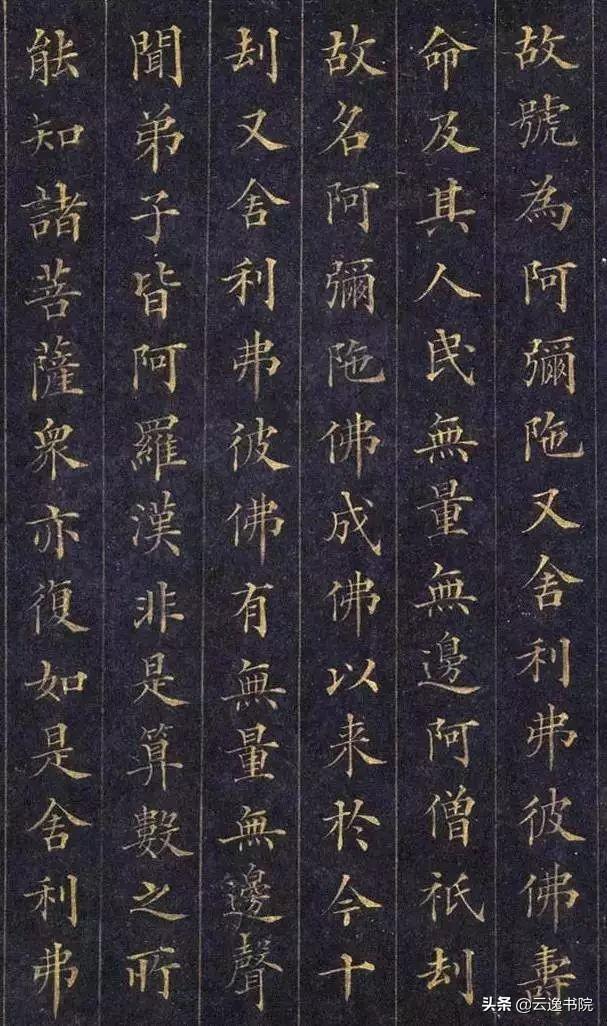 故號為阿彌陁又舍利弗彼佛壽
命及其人民無量無邊阿僧祇刦
故名阿彌陁佛成佛以来於今十
刦又舍利弗彼佛有無量無邊聲
聞弟子皆阿羅漢非是算數之所
能知諸菩薩衆亦復如是舍利弗
头条 @云逸书院